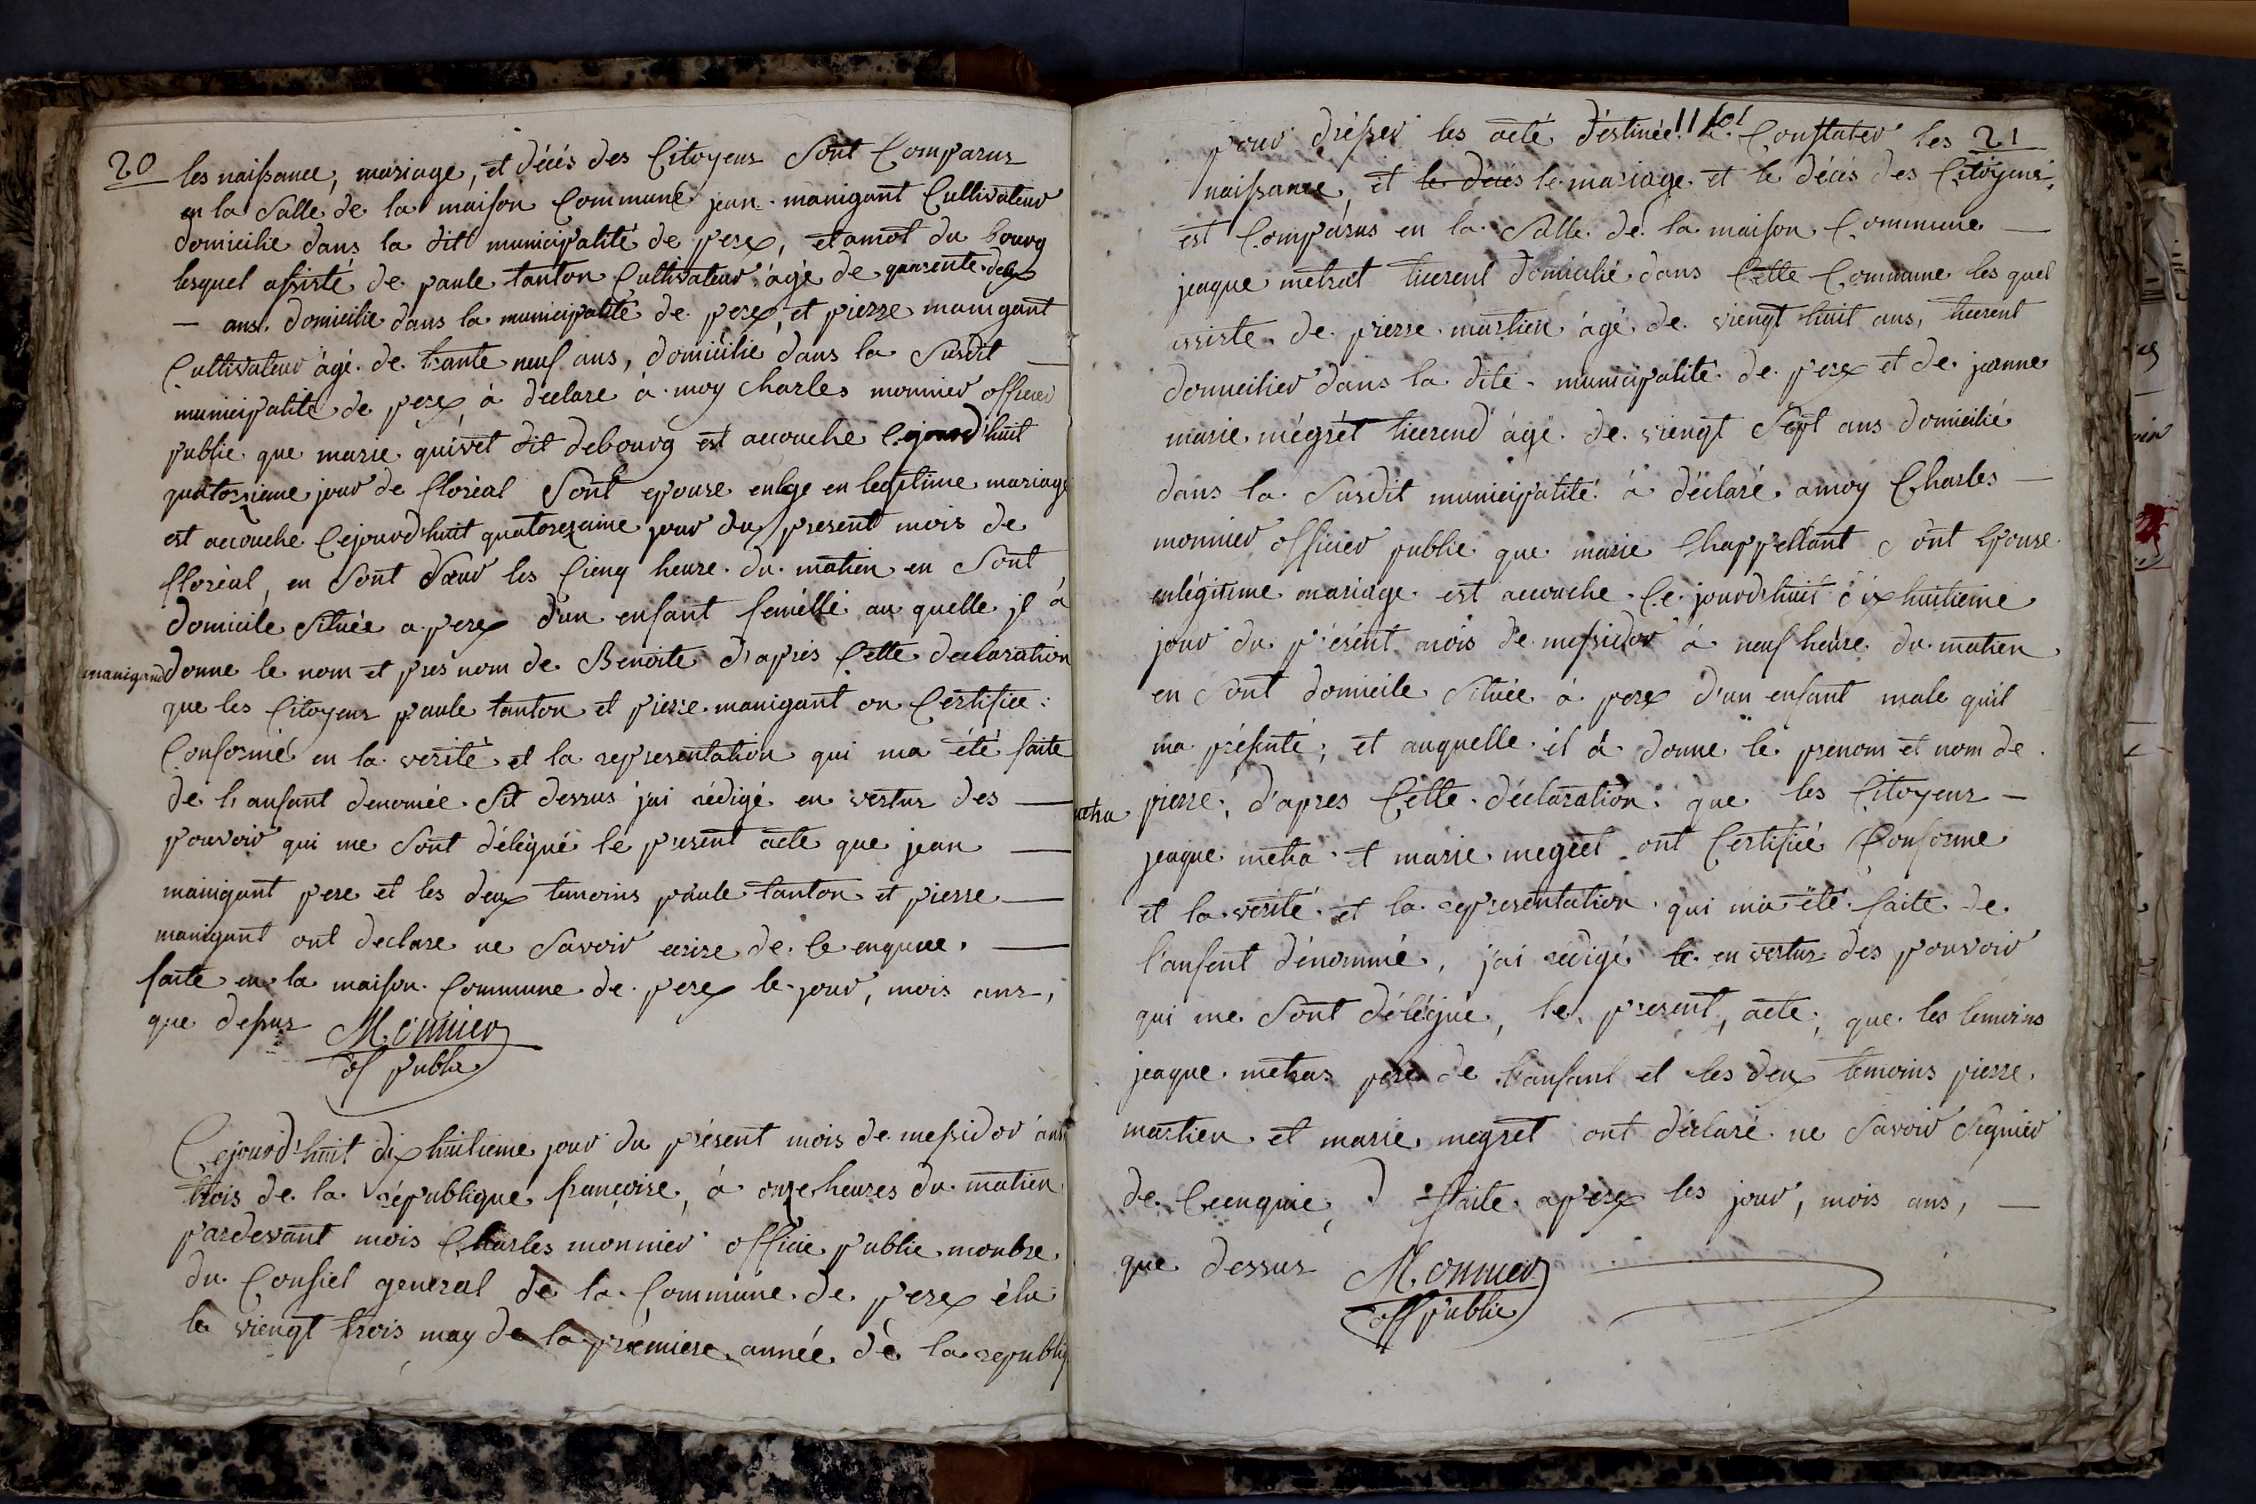 20
les naissance, mariage, et décés des Citoyens Sont Comparus
en la Salle de la maison Commune jean manigant Cultivateur
domicilie dans la ditt municipalité de perex, etamot du bourg
lesquel assisté de paule tanton Cultivateur âgé de quarente deux
— ans. domicilie dans la municipalité de perex, et pierre manigant
Cultivateur âgé de trante neuf ans, domicilié dans la Susdit —
municipalité de perex à declare à moy charles monnier officier
public que marie quivet dit debourg est accouche Cejourd'huit
quatorzieme jour de floréal Sont epouse en legitime mariage
est accouche Cejourd'huit quatorezaime jour du present mois de
floréal, en Sont les Cienq heure du matien en Sont
domicile Située a perex d'un enfant femélle au quelle jl à
manigand donne le nom et pres nom de Benoite d'aprés Cette declaration
que les Citoyens paule tanton et pierre manigant on Certifiee :
Conformé en la verité et la representation qui ma été faite
de l'anfant denomée Sit dessus j'ai rédigé en vertus des —
pouvoir qui me Sont délégué le present acte que jean —
manigant pere et les deux temoins paule tanton et pierre —
manigant ont declare ne Savoir ecrire de ce enquere. —
faite en la maison Commune de perex le jour, mois ans,
que dessus Monnier
off public
Cejourd'huit dix huitieme jour du présent mois de messidor ans
trois de la république françoise, à onze heures du matien
pardevant mois Charles monnier officié public monbre
du Consiel general de la Commune de perex élu
le viengt trois may de la premiere année de la republiq
21
pour dresser les acté déstinée à Constater les
naissance, et le décés le mariage et le décés des Citoyens,
est Comparus en la Salle de la maison Commune —
jeaque metrat ticerent domicilié dans Cette Commune les quel
assiste de pierre martien âgé de viengt huit ans, ticerent
domicilier dans la dite municipalité de perex et de jeanne
marie mégrét ticerend âgé de viengt Sept ans domicilié
dans la Susdit municipalité à déclaré amoy Charles —
monnier officier public que marie Chappellant Sont Epouse
enlégitime mariage est accouche Ce jourd'huit dix huitieme
jour du présent mois de messidor à neuf heure du matien
en Sont domicile Située à perex d'un enfant male quil
ma présenté, et auquelle il à donne le prenom et nom de
metra pierre, d'apres Cette déclaration que les Citoyens —
jeaque metra et marie megret ont Certifiée Conforme
et la verité et la representation qui ma été faite de
l'anfent dénommé, j'ai redigé le en vertus des pouvoir
qui me Sont délégué, le present, acte, que les temoins
jeaque metras pere de l'anfant et les deux temoins pierre
martien et marie megret ont déclaré ne Savoir Signier
de Ceenquie, faite aperex les jour, mois ans, —
que dessus Monnier
off public